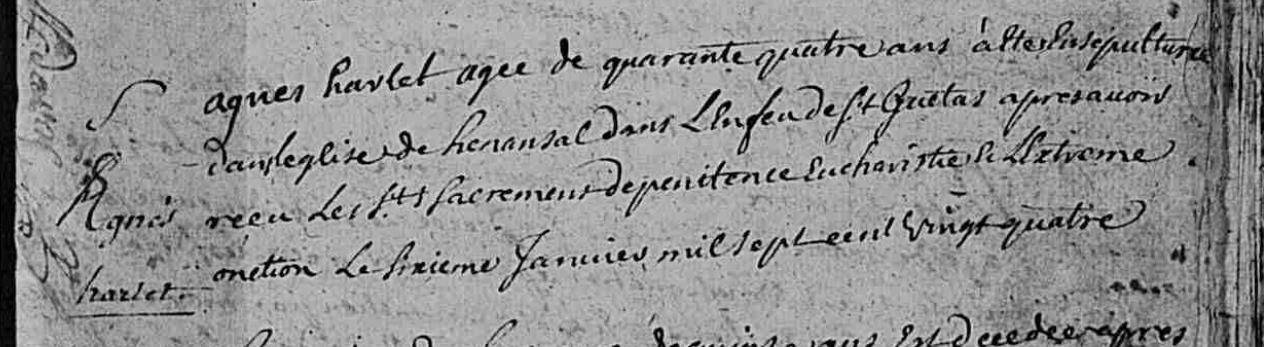 S
agnes harlet agee de quarante quatre ans à ette Ensepulturee
dans leglise de henansal dans L'Enfeu de St Guetas apres avoir
Agnés receu Les Sts Sacremens de penitence Eucharistie & L'Extreme
harlet. onction Le sixieme Janvier mil sept cent vingt quatre
ans Est decedee apres